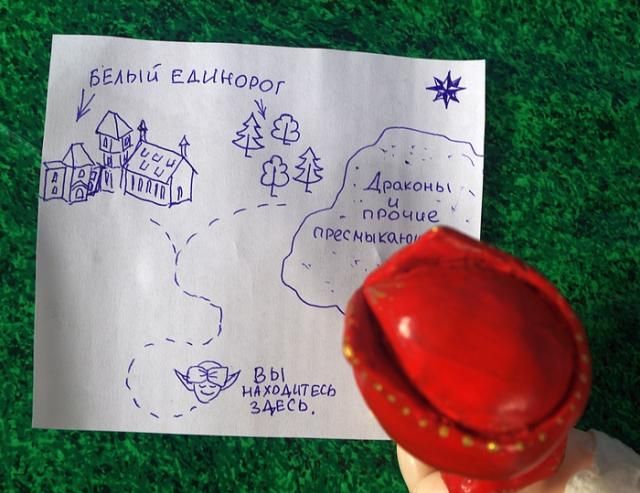 БЕЛЫЙ ЕДИНОРОГ
Драконы
и
прочие
ВЫ
НАХОДИТЕСЬ
ЗДЕСЬ.